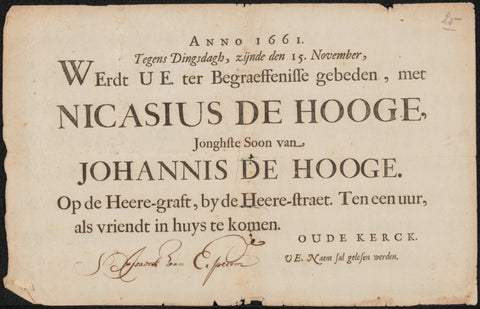 25
ANNO 1661.
Tegens Dingsdagh, zijnde den 15. November,
WErdt U E. ter Begraeffenisse gebeden, met
NICASIUS DE HOOGE,
Jonghste Soon van
JOHANNIS DE HOOGE.
Op de Heere-graft, by de Heere-straet. Ten een uur,
als vriendt in huys te komen.
OUDE KERCK.
UE. Naem sal gelesen werden.